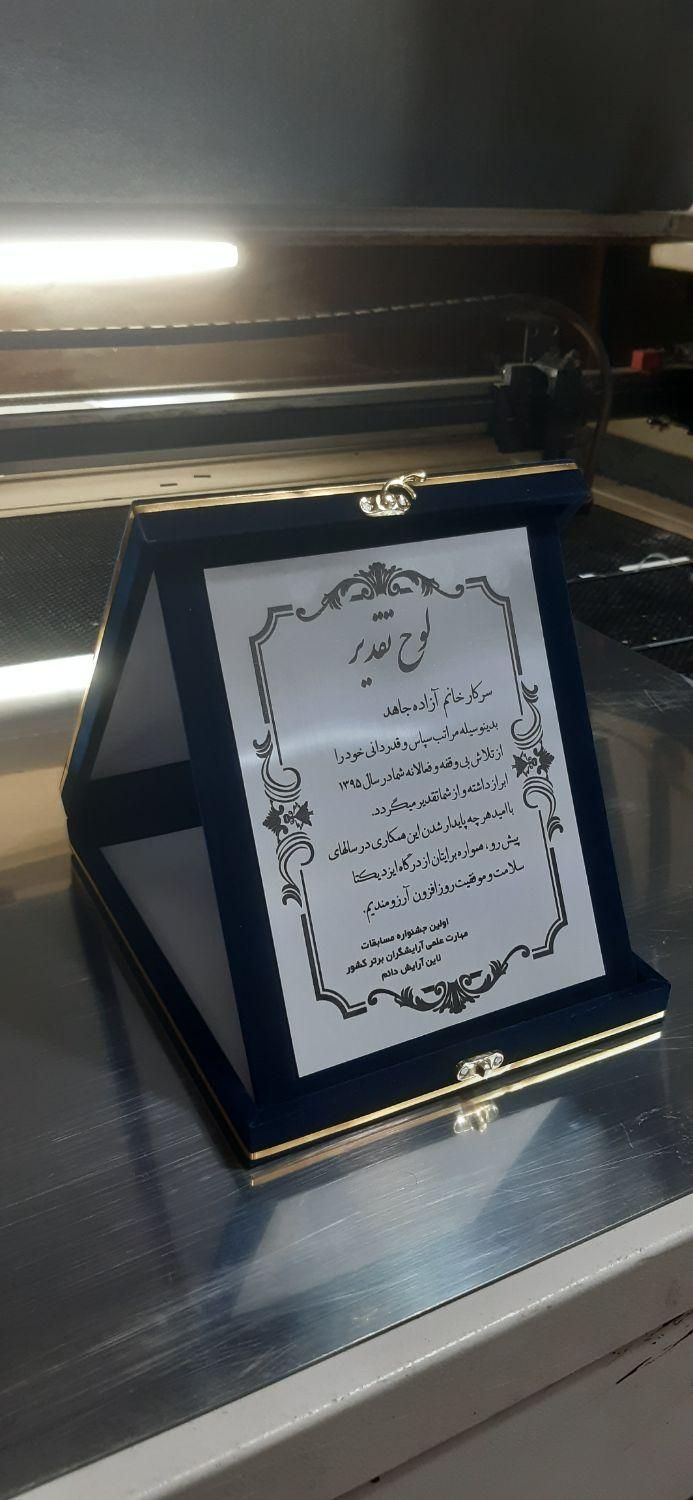 لوح تقدیر
سرکار خانم آزاده جاهد
بدینوسیله مراتب سپاس و قدردانی خود را
از تلاش بی وقفه و فعالانه شما در سال ۱۳۹۵
ابراز داشته و از شما تقدیر میگردد.
با امید هر چه پایدار شدن این همکاری در سالهای
پیش رو، همواره برایتان از درگاه ایزد یکتا
سلامت و موفقیت روز افزون آرزومندیم.
اولین جشنواره مسابقات
مهارت علمی آرایشگران برتر کشور
ناین آرایش دائم